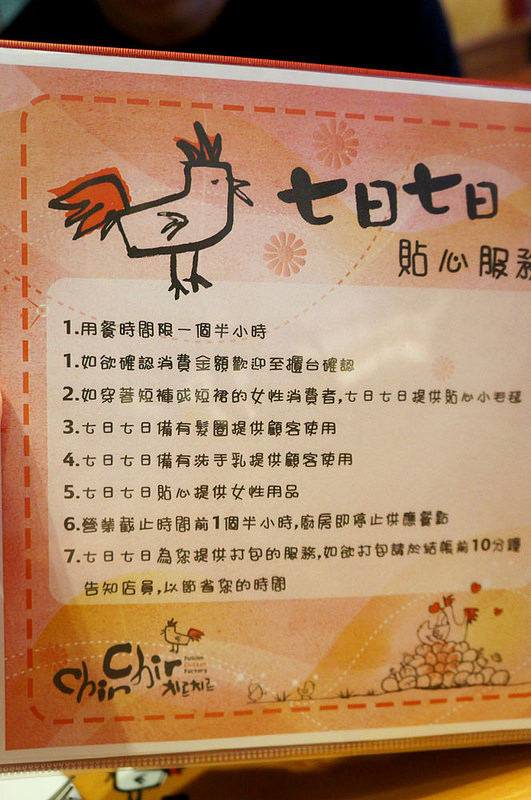 七日七日
貼心服務
1.用餐時間限一個半小時
1.如欲確認消費金額歡迎至櫃台確認
2.如穿著短褲或短裙的女性消費者,七日七日提供貼心小毛毯
3.七日七日備有髮圈提供顧客使用
4.七日七日備有洗手乳提供顧客使用
5.七日七日貼心提供女性用品
6.營業截止時間前1個半小時,廚房即停止供應餐點
7.七日七日為您提供打包的服務,如欲打包請於結帳前10分鐘
告知店員,以節省您的時間
Chir Chir
Fusion
Chicken
Factory
치르치르